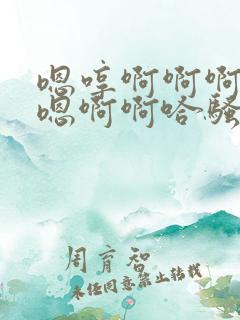 嗯哼啊啊啊
嗯啊啊哈骚
周育智
未经同意禁止转载